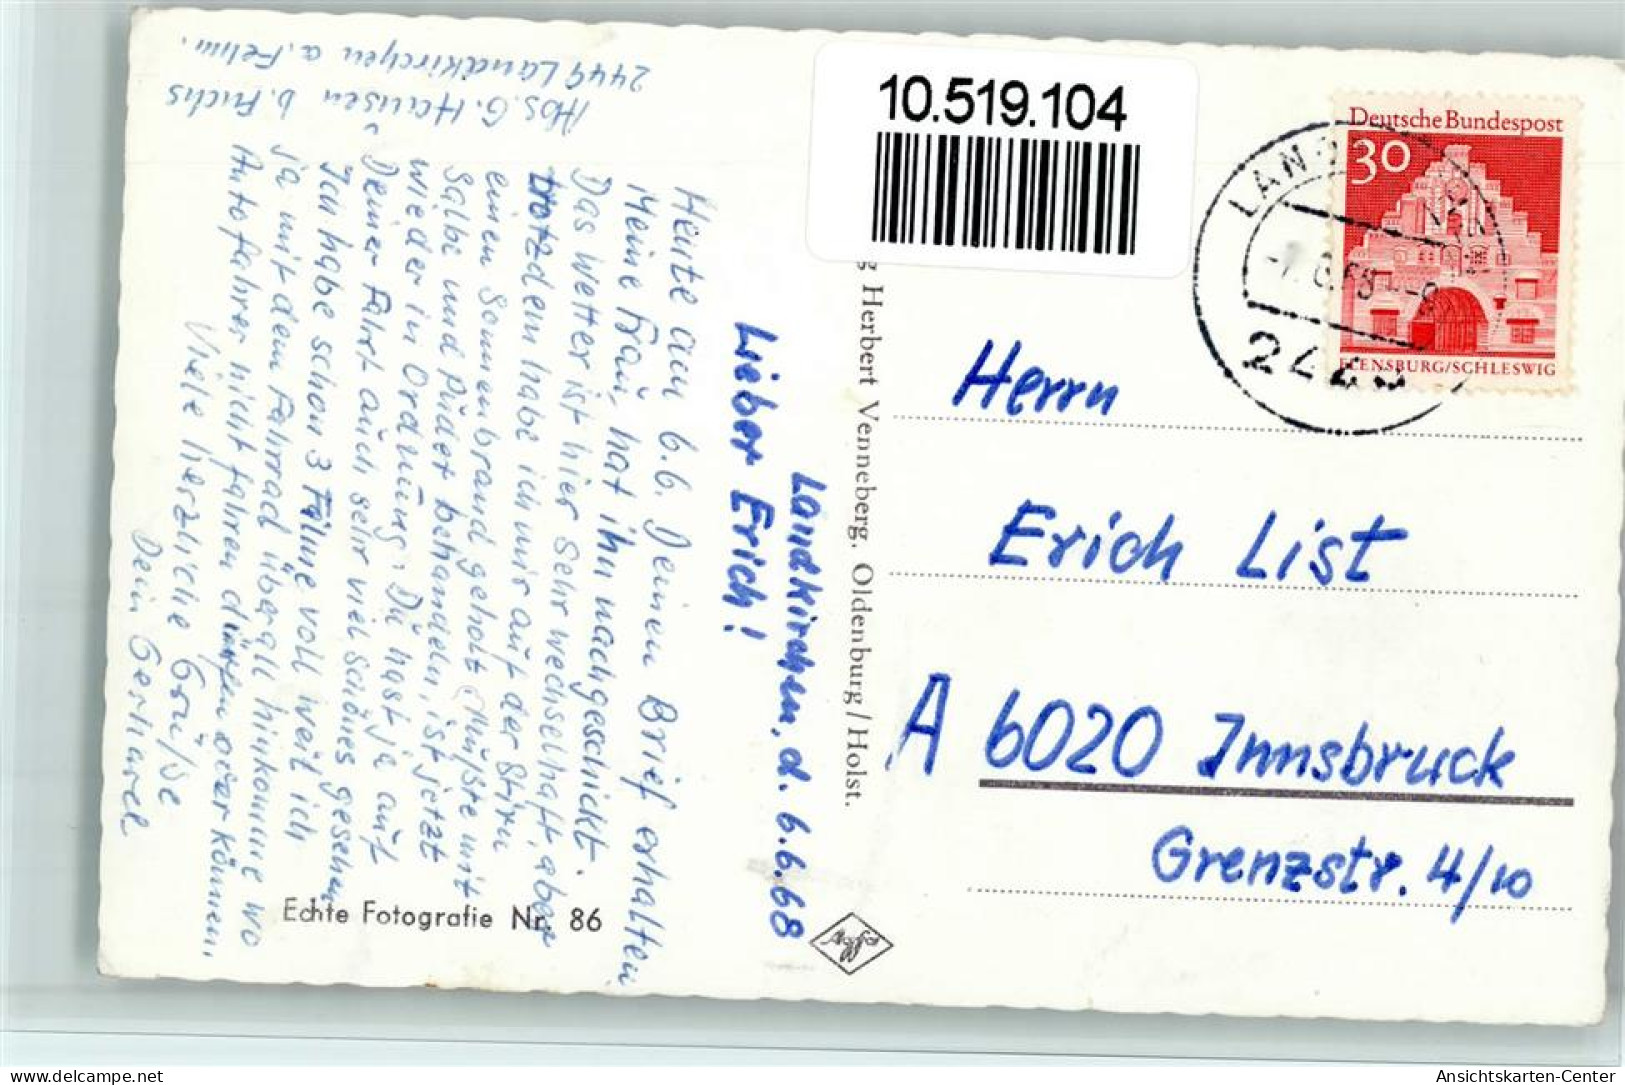 Abs. G. Hansen b. Fichs
2449 Landkirchen a. Fehm.
Landkirchen, d. 6.6.68
Lieber Erich!
Heute am 6.6. Deinen Brief erhalten
Meine Frau, hat ihn nachgeschickt.
Das Wetter ist hier sehr wechselhaft, aber
trotzdem habe ich mir auf der Stirn
einen Sonnenbrand geholt. Mußte mit
Salbe und Puder behandeln, ist jetzt
wieder in Ordnung. Du hast ja auf
Deiner Fahrt auch sehr viel Schönes gesehen
Ich habe schon 3 Filme voll weil ich
ja mit dem Fahrrad überall hinkomme wo
Autofahrer nicht fahren dürfen oder können.
Viele herzliche Grüße
Dein Gerhard
Echte Fotografie Nr. 86
Agfa
g Herbert Venneberg. Oldenburg/Holst.
10.519.104
Deutsche Bundespost
30
FLENSBURG/SCHLESWIG
Herrn
Erich List
A 6020 Innsbruck
Grenzstr. 4/10
Ansichtskarten-Center
https://www.ansichtskarten-center.de/